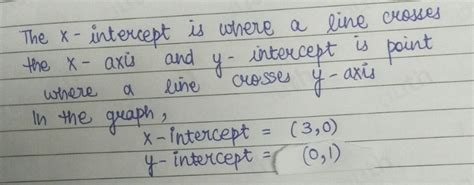 The x-intercept is where a line crosses
the x-axis and y-intercept is point
where a line crosses y-axis
In the graph,
x-intercept = (3,0)
y-intercept = (0,1)